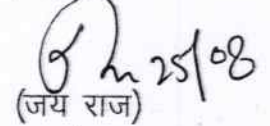 25/08
(जय राज)